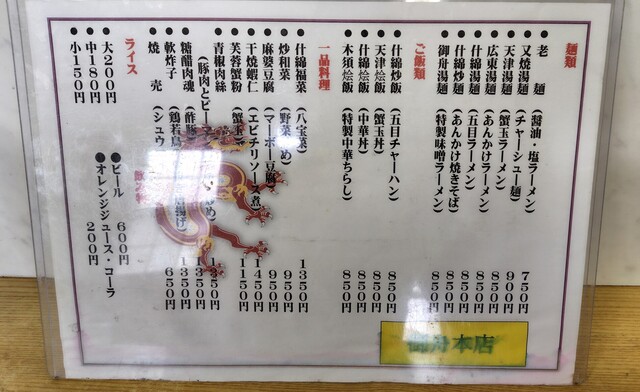 麺類
●老麺（醤油・塩ラーメン）７５０円
●叉焼湯麺（チャーシュー麺）９００円
●天津湯麺（蟹玉ラーメン）８５０円
●広東湯麺（あんかけラーメン）８５０円
●什綿湯麺（五目ラーメン）８５０円
●什綿炒麺（あんかけ焼きそば）８５０円
●御舟湯麺（特製味噌ラーメン）８５０円
ご飯類
●什綿炒飯（五目チャーハン）８５０円
●天津烩飯（蟹玉丼）８５０円
●什綿烩飯（中華丼）８５０円
●木須烩飯（特製中華ちらし）８５０円
一品料理
●什綿福菜（八宝菜）１３５０円
●炒和菜（野菜炒め）９５０円
●麻婆豆腐（マーボー豆腐）９５０円
●干焼蝦仁（エビチリソース煮）１４５０円
●芙蓉蟹粉（蟹玉）１１５０円
●青椒肉絲
（豚肉とピーマン 炒め）１３５０円
●糖醋肉塊（酢豚）１３５０円
●軟炸子（鶏若鳥 唐揚げ）１３５０円
●焼売（シュウ ６５０円
ライス
●大２００円
●中１８０円
●小１５０円
飲み物
●ビール ６００円
●オレンジジュース・コーラ
２００円
御舟本店